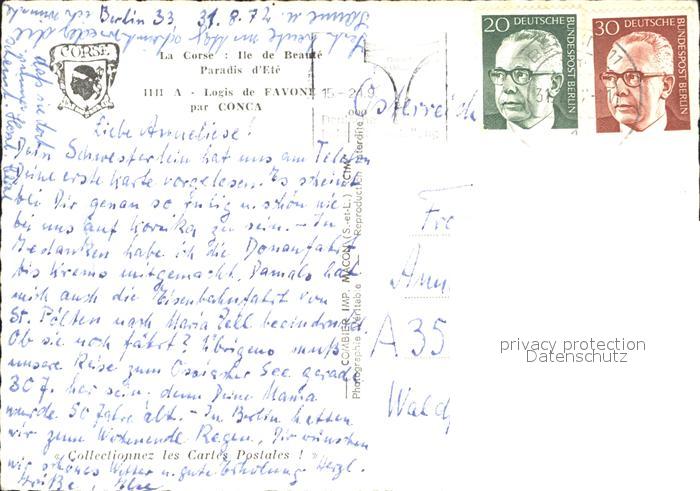 Berlin 33 31.8.72
CORSE
La Corse : Ile de Beauté
Paradis d'Eté
1111 A - Logis de FAVONE
par CONCA
20 DEUTSCHE BUNDESPOST BERLIN
30 DEUTSCHE BUNDESPOST BERLIN
Österreich
Liebe Anneliese!
Dein Schwesterlein hat uns am Telefon
Deine erste Karte vorgelesen. Es scheint
bei Dir genau so ruhig u. schön wie
bei uns auf Korsika zu sein. - In
Gedanken habe ich die Donaufahrt
bis Krems mitgemacht. Damals hat
mich auch die Eisenbahnfahrt von
St. Pölten nach Maria Zell beeindruckt.
Ob sie noch fährt? Übrigens muß
unsere Reise zum Ossiacher See gerade
30 J. her sein, denn Deine Mama
wurde 50 Jahre alt. - In Berlin hatten
wir zum Wochenende Regen. Wir wünschen
wir schönes Wetter u. gute Erholung Herzl.
Grüße,
« Collectionnez les Cartes Postales ! »
COMBIER IMP. MACON (S.-et-L.) "CIM"
Photographie véritable - Reproduction interdite
Fr
A 35
Wald
privacy protection
Datenschutz